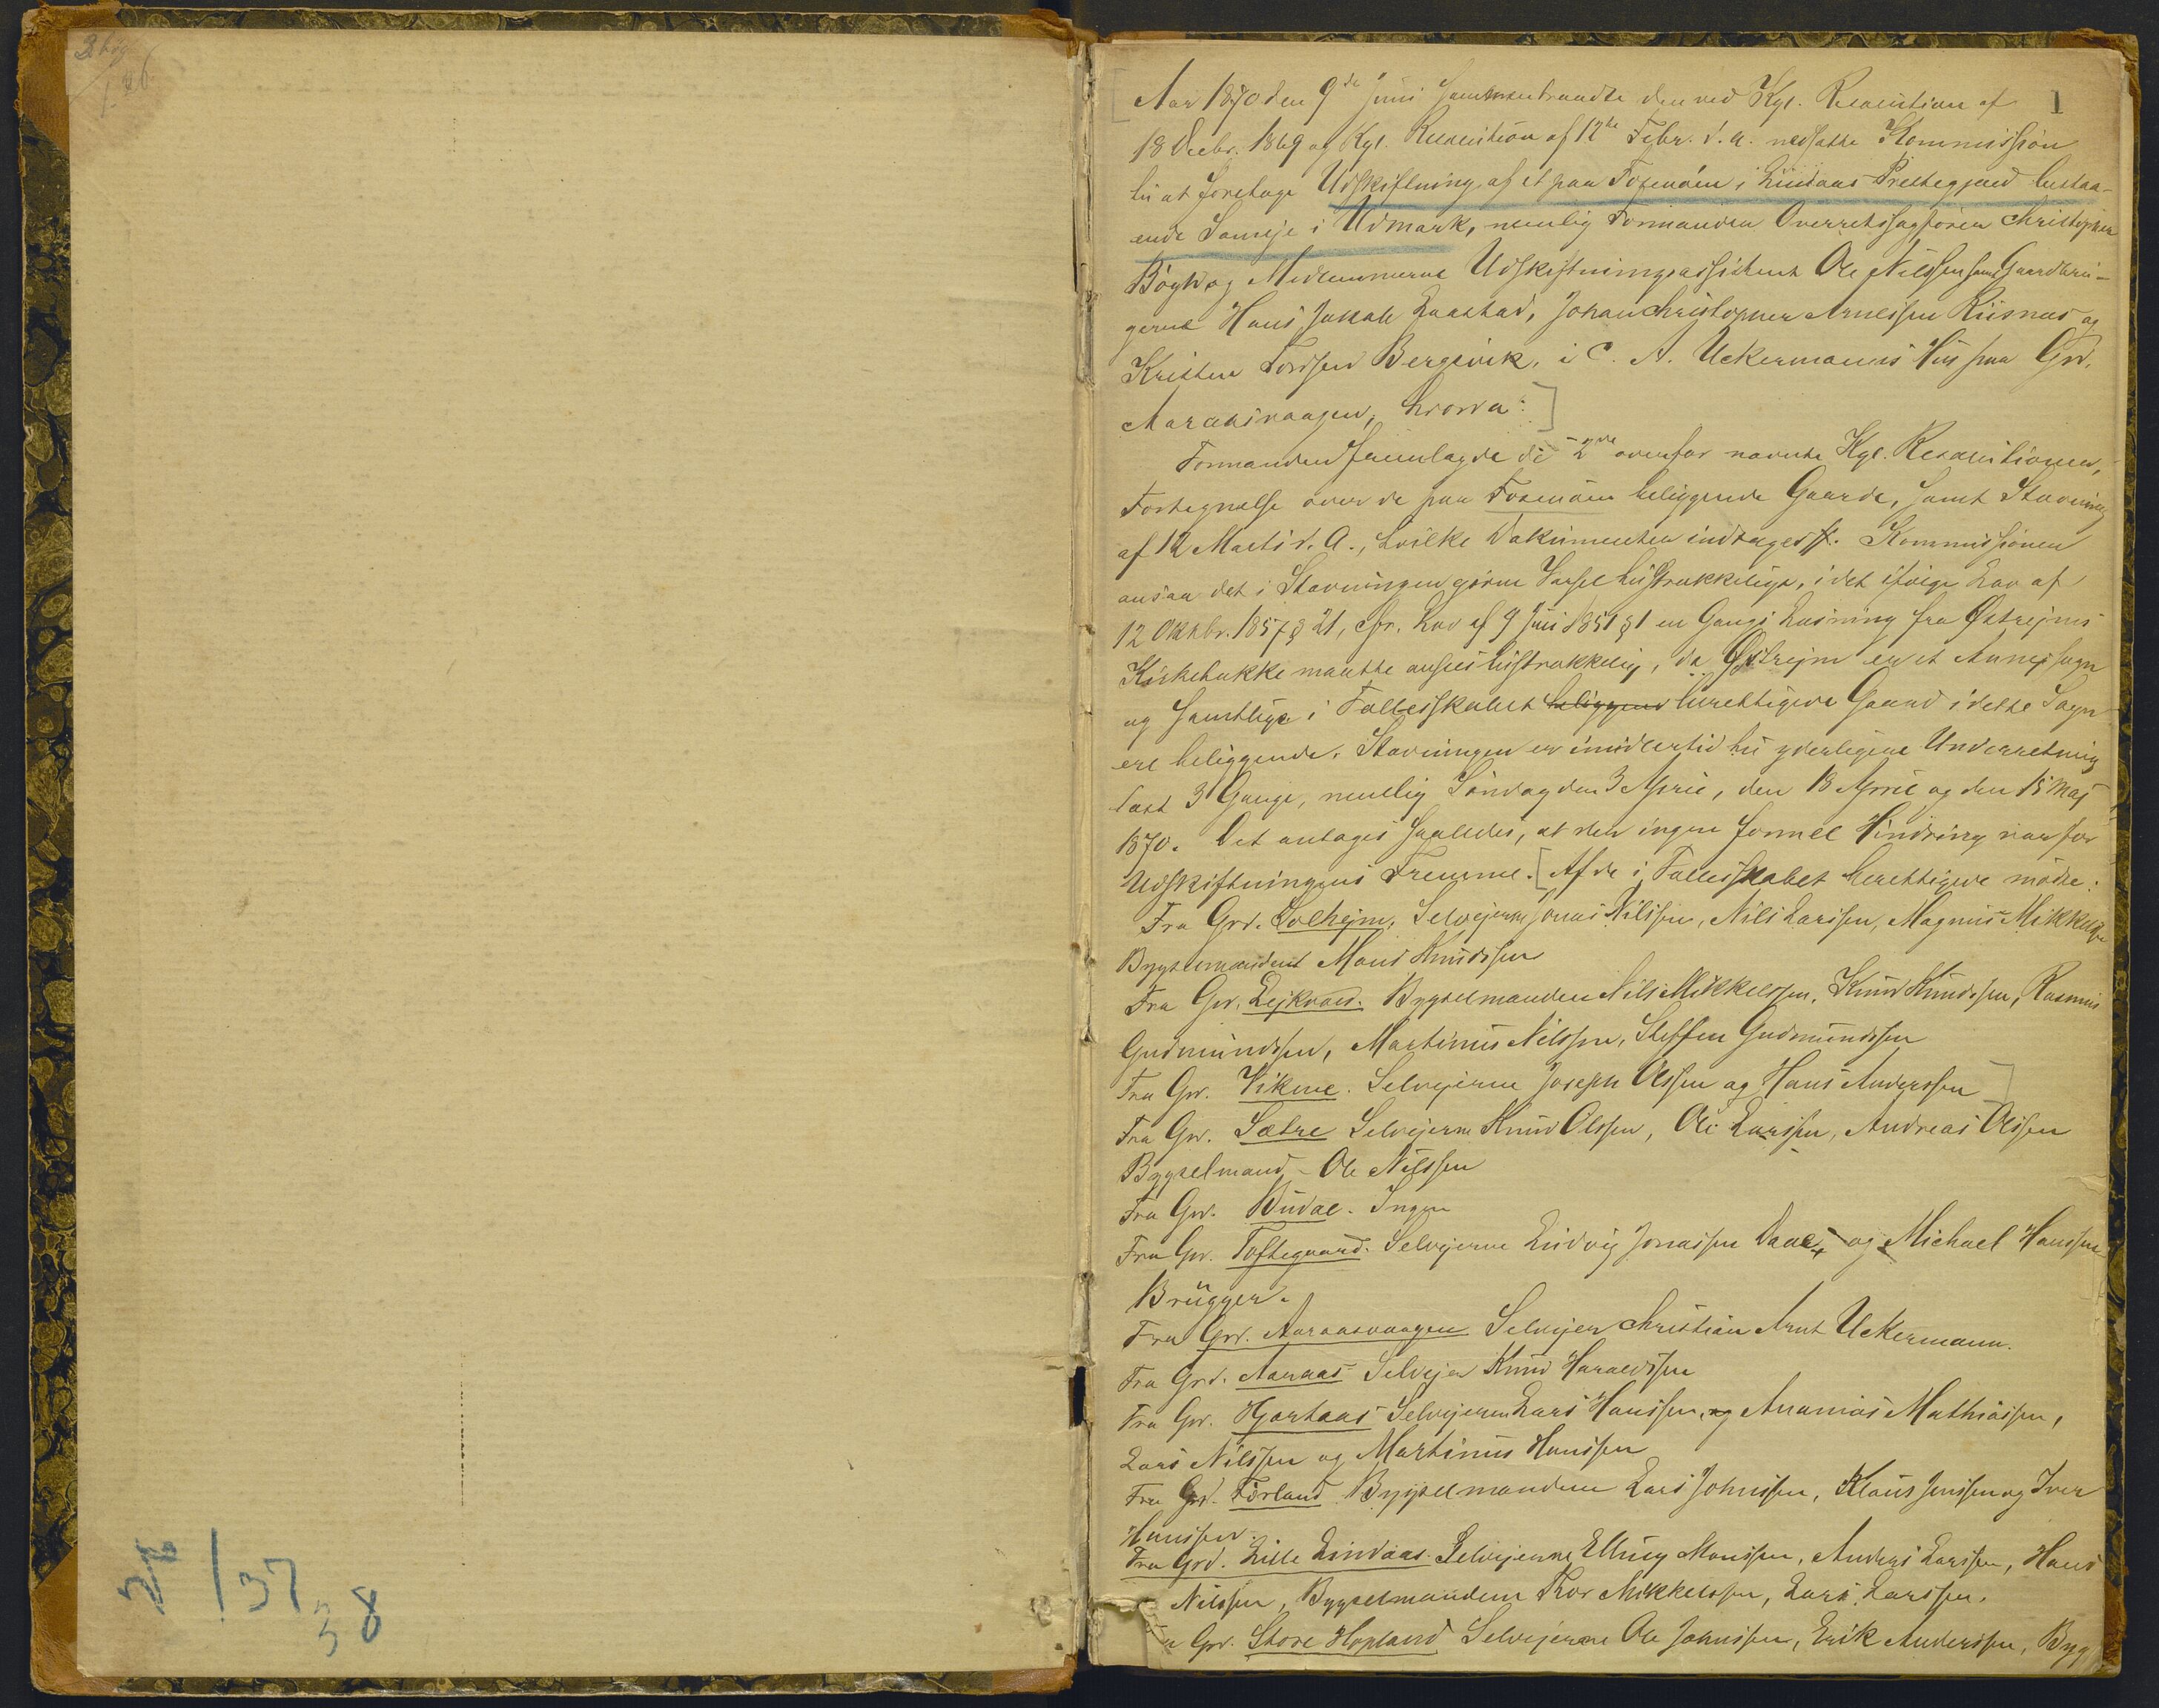 1
Aar 1870 den 9de Juni sammentraadte den ved Kgl. Resolution af
18 Decbr. 1869 og Kgl. Resolution af 12te Febr. d. a. nedsatte Kommission
til at foretage Udskiftning af et paa Fosenöen i Lindaas Prestegjæld bestaa-
ende Sameje i Udmark, nemlig Formanden Overretssagfører Christopher
Bögh og Medlemmerne Udskiftningsassistent Ole Nilssen samt Gaardbru-
gerne Hans Jakob Laastad, Johan Christopher Arnessen Riisnæs og
Kristen Tordsen Bergsvik, i C. A. Uckermanns Hus paa Grd.
Aaraasvaagen, hvorda:
Formanden fremlagde de 2de ovenfor nævnte Kgl. Resolutioner,
Fortegnelse over de paa Fosenöen beliggende Gaarde, samt Stævning
af 12 Marts d. A., hvilke Dokumenter indtages ff. Kommissionen
ansaa det i Stævningen givne Varsel tilstrækkeligt, idet ifölge Lov af
12 Oktbr. 1857 § 21, cfr. Lov af 9 Juni 1851 § 1 en Gangs Læsning fra Østrejms
Kirkebakke maatte ansees tilstrækkelig, da Østrejm er et Annexsogn
og samtlige i Fællesskabet beliggend berettigede Gaard i dette Sogn
ere beliggende. Stævningen er imidlertid til yderligere Underretning
læst 3 Gange, nemlig Söndag den 3 April, den 18 April og den 15 Maj
1870. Det antages saaledes, at der ingen formel Hindring var for
Udskiftningens Fremme. Af de i Fællesskabet berettigede mödte:
Fra Grd. Solhejm, Selvejerne Jonas Nilssen, Nils Larssen, Magnus Mikkelsen
Bygselmandens Mons Knudssen
Fra Grd. Lejkvold. Bygselmanden Nils Mikkelssen, Knud Knudssen, Rasmus
Gudmundssen, Martinus Nilssen, Steffen Gudmundssen
Fra Grd. Vikene. Selvejerne Joseph Olssen og Hans Anderssen
Fra Grd. Sætre Selvejerne Knud Olssen, Ole Larssen, Andreas Olssen
Bygselmand - Ole Nilssen
Fra Grd. Budal. Ingen
Fra Grd. Toftegaard. Selvejerne Ludvig Jonassen Daae og Michael Hanssen
Brügger.
Fra Grd. Aaraasvaagen Selvejer Christian Arnt Uckermann.
Fra Grd. Aaraas Selvejer Knud Haraldssen
Fra Grd. Hjortaas Selvejerne Lars Hanssen, og Ananias Mathiassen,
Lars Nilssen og Martinus Hanssen
Fra Grd. Förland Bygselmændene Lars Johnssen, Klaus Jenssen og Iver
Hanssen.
Fra Grd. Lille Lindaas. Selvejerne Elling Monssen, Anders Larssen, Hans
Nilssen, Bygselmændene Thor Mikkelssen, Lars Larssen.
Fra Grd. Store Hopland Selvejerne Ole Johnssen, Erik Anderssen, Byg
37
38